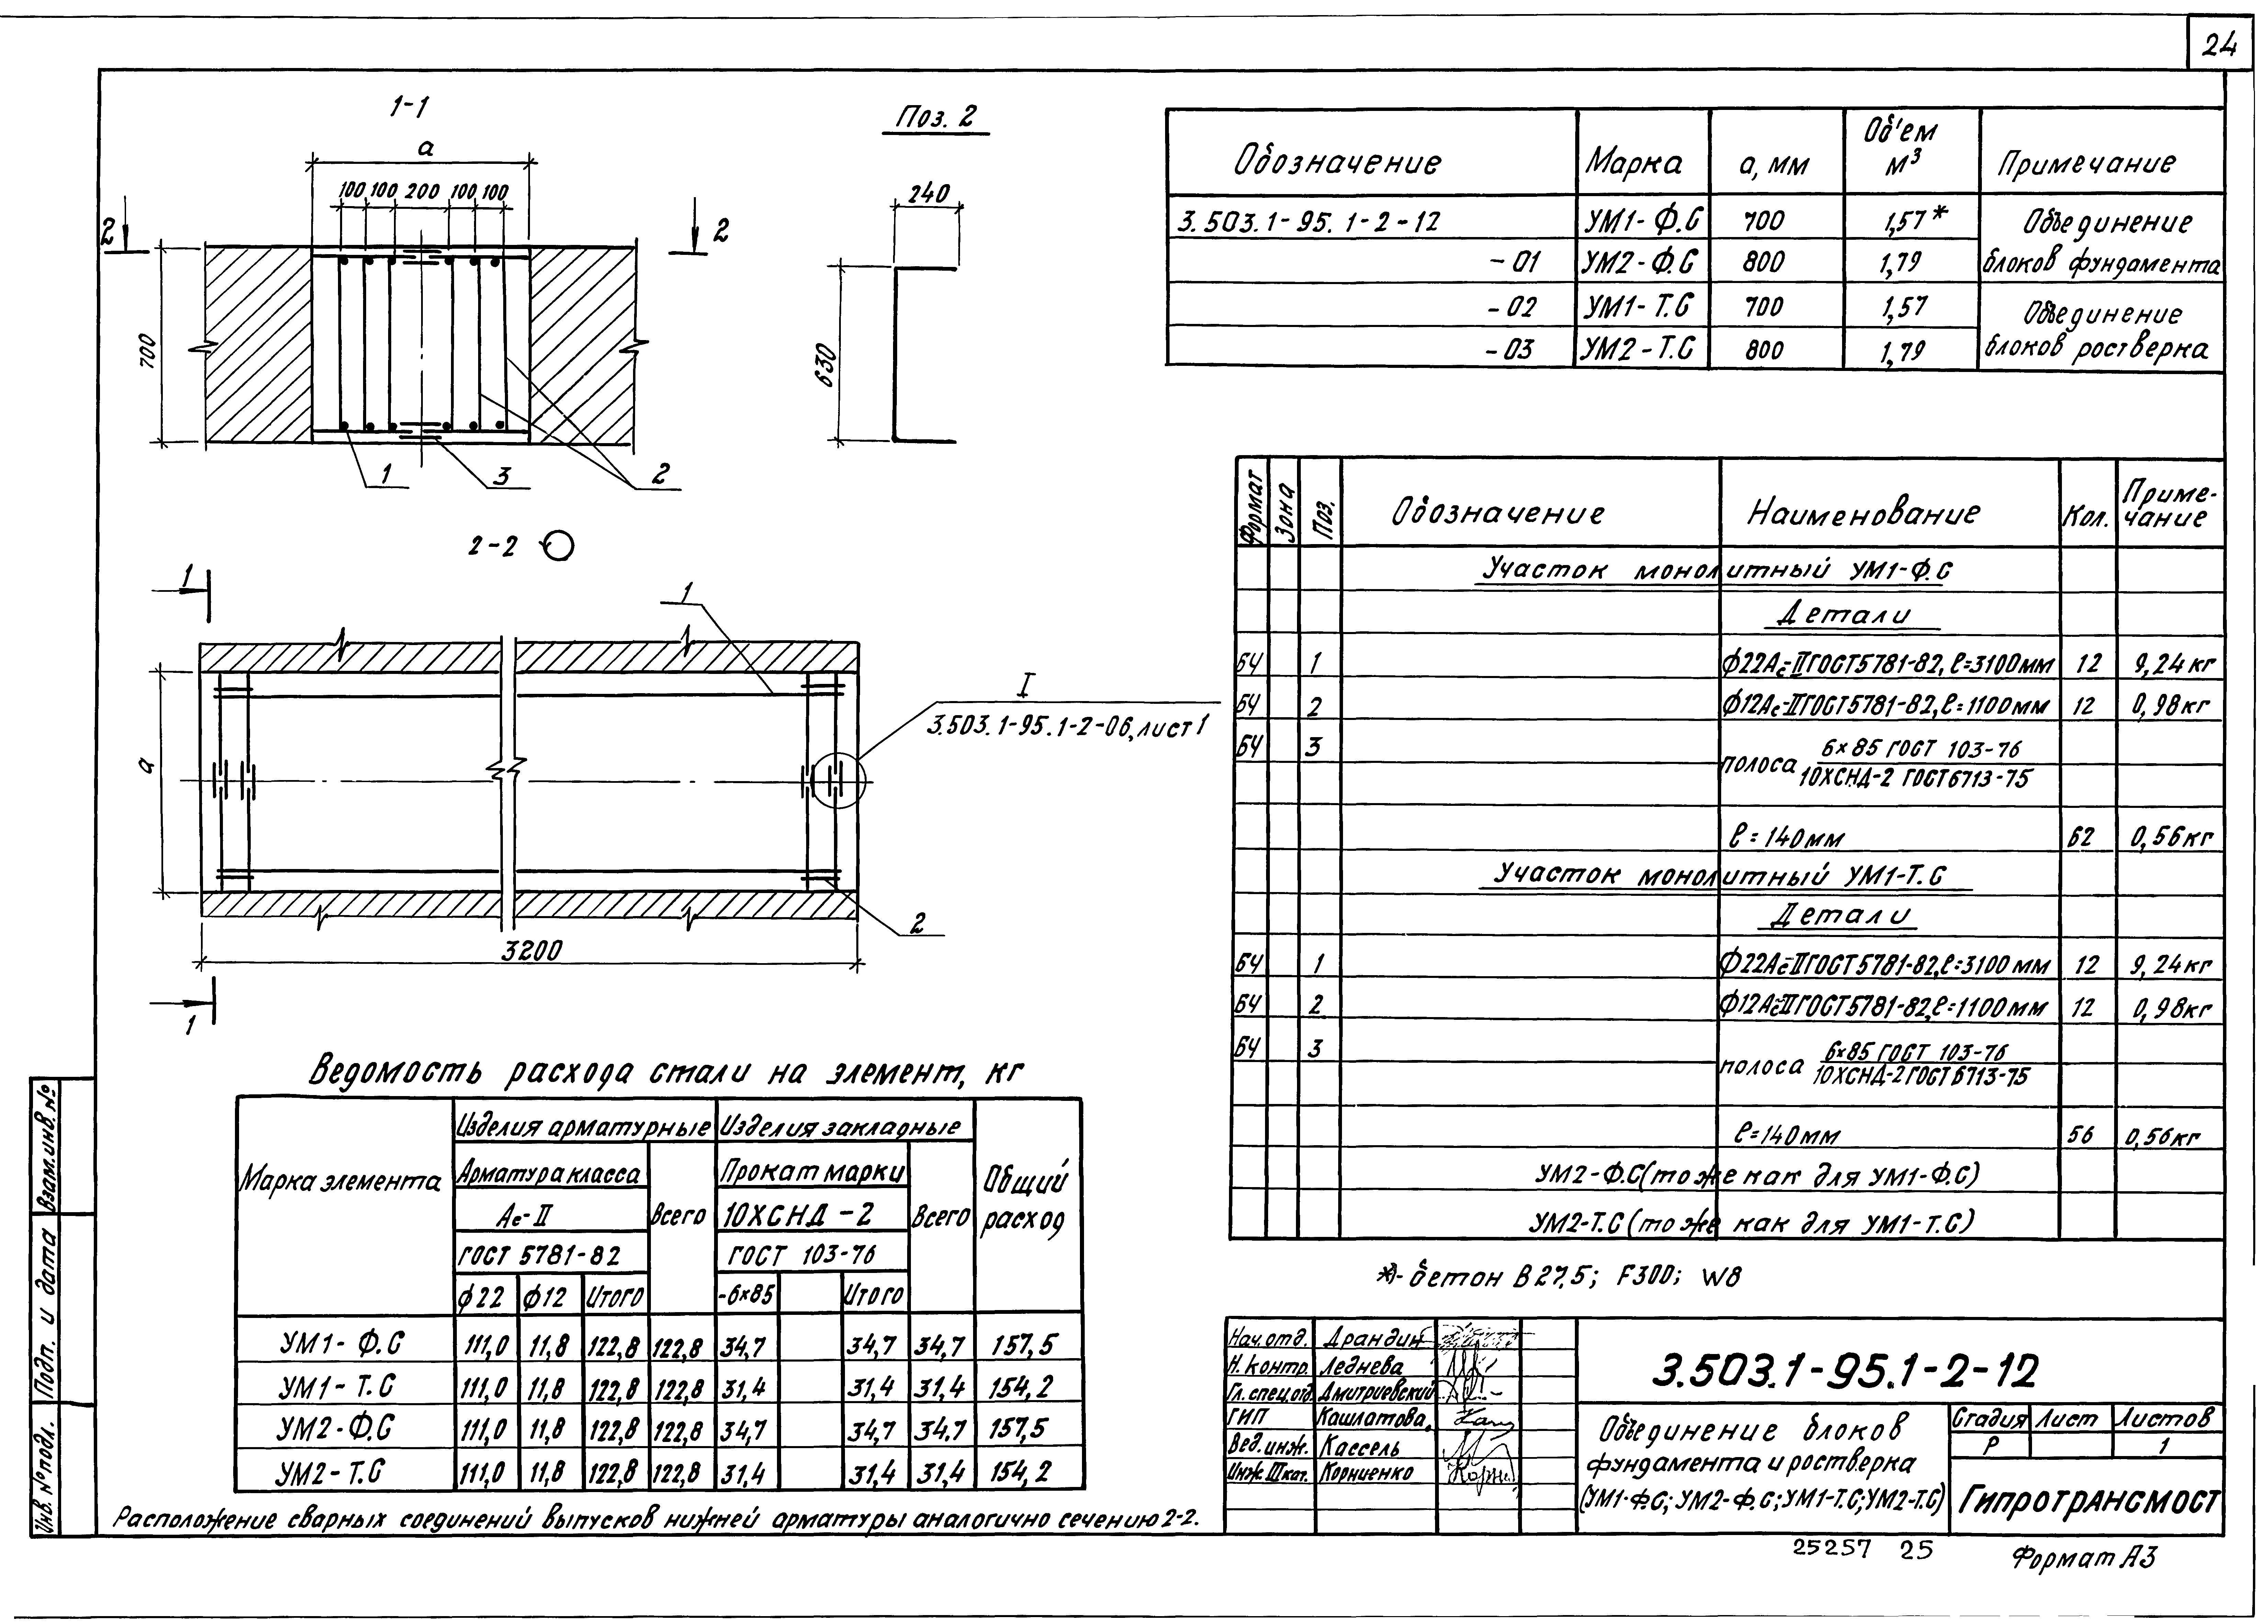 24
1-1
a
100 100 200 100 100
2
2
700
1
3
2
Поз. 2
240
630
2-2
1
1
I
3.503.1-95.1-2-06, лист 1
a
2
3200
1
Обозначение Марка а, мм Объем м³ Примечание
3.503.1-95.1-2-12 УМ1-Ф.С 700 1,57* Объединение
-01 УМ2-Ф.С 800 1,79 блоков фундамента
-02 УМ1-Т.С 700 1,57 Объединение
-03 УМ2-Т.С 800 1,79 блоков ростверка
Формат Зона Поз. Обозначение Наименование Кол. Приме-чание
Участок монолитный УМ1-Ф.С
Детали
БЧ 1 ф22Ас-II ГОСТ 5781-82, ℓ=3100мм 12 9,24кг
БЧ 2 ф12Ас-II ГОСТ 5781-82, ℓ=1100мм 12 0,98кг
БЧ 3 полоса 6×85 ГОСТ 103-76
10ХСНД-2 ГОСТ 6713-75
ℓ=140мм 62 0,56кг
Участок монолитный УМ1-Т.С
Детали
БЧ 1 ф22Ас-II ГОСТ 5781-82, ℓ=3100мм 12 9,24кг
БЧ 2 ф12Ас-II ГОСТ 5781-82, ℓ=1100мм 12 0,98кг
БЧ 3 полоса 6×85 ГОСТ 103-76
10ХСНД-2 ГОСТ 6713-75
ℓ=140мм 56 0,56кг
УМ2-Ф.С (то же как для УМ1-Ф.С)
УМ2-Т.С (то же как для УМ1-Т.С)
*)- бетон В27,5; F300; W8
Ведомость расхода стали на элемент, кг
Марка элемента Изделия арматурные Изделия закладные Общий расход
Арматура класса Всего Прокат марки Всего
Ас-II 10ХСНД-2
ГОСТ 5781-82 ГОСТ 103-76
ф22 ф12 Итого -6×85 Итого
УМ1-Ф.С 111,0 11,8 122,8 122,8 34,7 34,7 34,7 157,5
УМ1-Т.С 111,0 11,8 122,8 122,8 31,4 31,4 31,4 154,2
УМ2-Ф.С 111,0 11,8 122,8 122,8 34,7 34,7 34.7 157,5
УМ2-Т.С 111,0 11,8 122,8 122,8 31,4 31,4 31,4 154,2
Расположение сварных соединений выпусков нижней арматуры аналогично сечению 2-2.
Взам.инв.№
Подп. и дата
Инв.№подл.
Нач.отд. Драндин
Н.контр. Леднева
Гл.спец.отд. Дмитриевский
ГИП Кашлатова
Вед.инж. Кассель
Инж.IIIкат. Корниенко
3.503.1-95.1-2-12
Объединение блоков
фундамента и ростверка
(УМ1-Ф.С; УМ2-Ф.С; УМ1-Т.С; УМ2-Т.С)
Стадия Лист Листов
Р 1
Гипротрансмост
25257 25
Формат А3